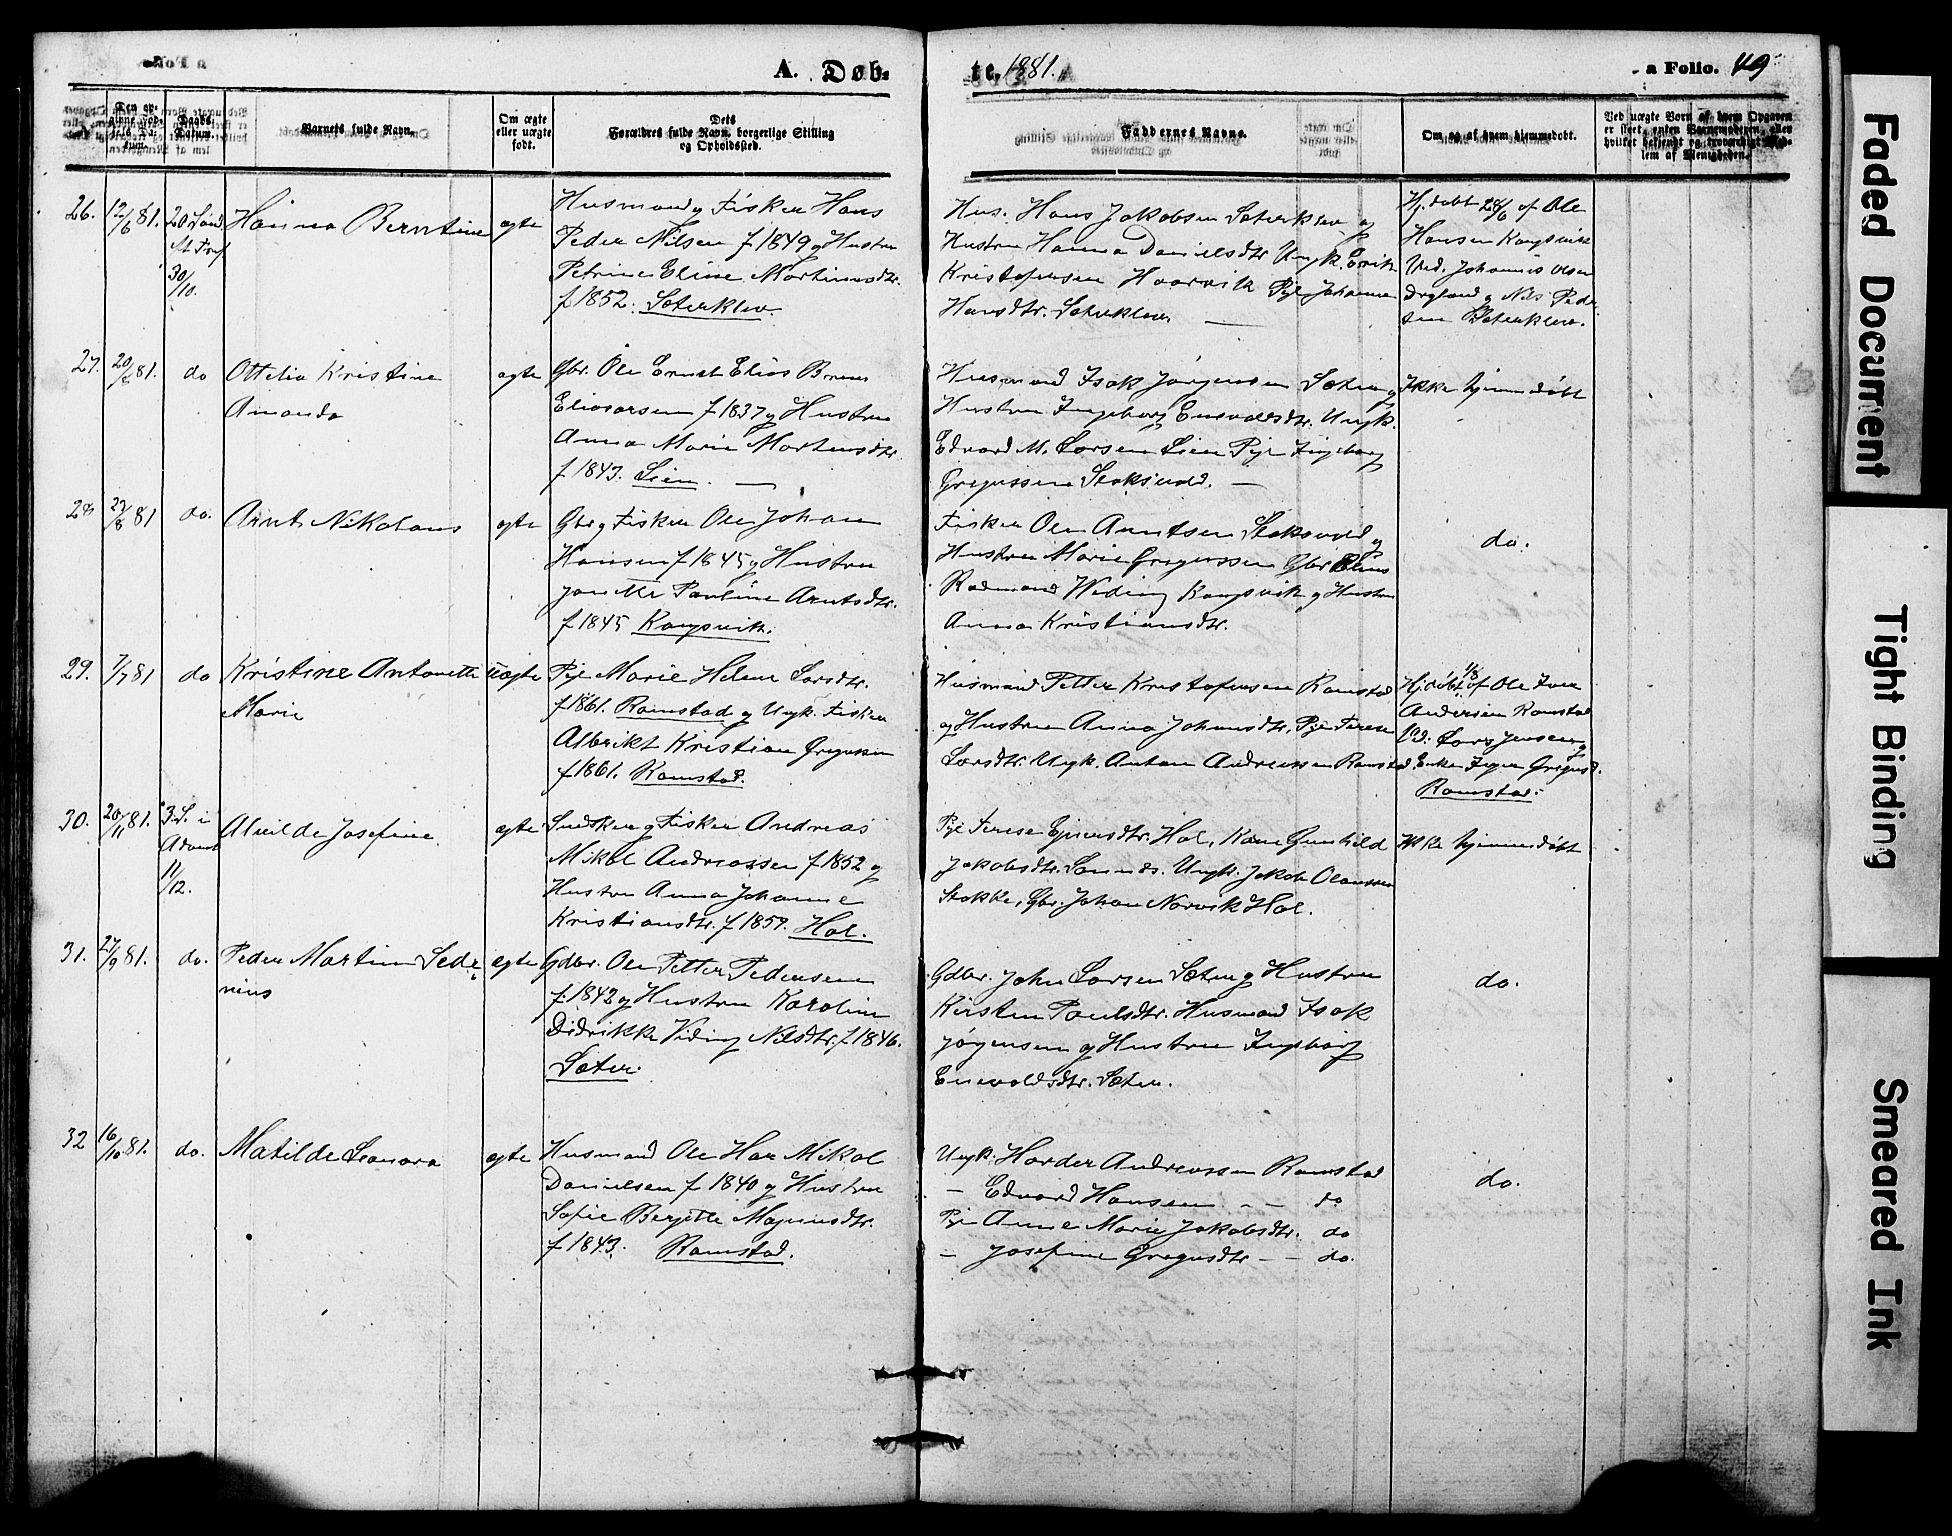 A. Døbte. 1881. a Folio. 49
Den opgivne Fødsels Datum.
Daabs-Datum.
Barnets fulde Navn.
Om ægte eller uægte født.
Dets Forældres fulde Navn, borgerlige Stilling og Opholdssted.
Faddernes Navne.
Om og af hvem hjemmedøbt.
Ved uægte Børn af hvem Opgaven er skeet, enten Barnemoderen, eller hvilket bekjendt og troværdigt Medlem af Menigheden.
26. 12/6 81. 20 Sønd.
30/10.
Hanna Berntine
ægte
Husmand og Fisker Hans
Peder Nilsen f 1849 og Hustru
Petrine Eline Martinusdtr.
f 1852. Sæterklev.
Hus. Hans Jakobsen Sæterklev og
Hustru Hanna Danielsdtr. Ungk. Erik
Kristofersen Haarvik Pige Johanna
Hansdtr. Sæterklev.
Hj. døbt 28/6 af Ole
Hansen Kongsvik
Vid. Johannis Olsen
og Nils Peder
sen Sæterklev.
27. 20/8 81. do
Ottelia Kristine
Amanda
ægte
Gbr. Ole Ernst Elias
Eliasarsen f 1837 og Hustru
Anna Marie Mortensdtr
f 1843. Lien.
Husmand Isak Jørgensen Sæter og
Hustru Ingeborg Enevoldsdtr. Ungk.
Edvard M. Larsen Lien Pige Ingeborg
Gregussen Stoksvold.
Ikke hjemmedøbt
28. 27/8 81 do.
Arnt Nikolaus
ægte
Gbr og Fisker Ole Johan
Hansen f 1845 og Hustru
Janette Pauline Arntsdtr.
f 1845 Kongsvik.
Fisker Ole Arntsen Stoksvold og
Hustru Marie Gregussen Gbr
Rasmand Weding Kongsvik og Hustru
Anna Kristiansdtr.
do.
29. 7/7 81 do
Kristine Antonette
Marie
uægte
Pige Marie Helene Larsdtr.
f 1861. Ramstad og Ungk. Fisker
Albrikt Kristian Gregussen
f 1861. Ramstad.
Husmand Petter Kristofersen Ramstad
og Hustru Anna Johansdtr. Pige Terese
Larsdtr. Ungk. Anton Andreassen Ramstad.
Hj. døbt 1/8 af Ole Iver
Andersen Ramstad
Vid. Lars Jensen og
Enke Inger Gregusd.
Ramstad.
30. 20/11 81. 3. S. i
Advent
11/12.
Alvilde Josefine
ægte
Snedker og Fisker Andreas
Mikal Andreassen f 1852 og
Hustru Anna Johanne
Kristiansdtr. f 1857. Hol.
Pige Terese Ejnersdtr. Hol, Kone Gunhild
Jakobsdtr. Sandnes. Ungk. Jakob Olaussen
Stokke, Gbr. Johan Norvik Hol.
Ikke hjemmedøbt
31. 27/9 81. do.
Peder Martin Sede
nius
ægte
Gdbr. Ole Petter Pedersen
f. 1842 og Hustru Karolin
Didrikke Viding Nilsdtr. f 1846.
Sæter.
Gdbr. John Larsen Sæter og Hustru
Kirsten Paulsdtr. Husmand Isak
Jørgensen og Hustru Ingeborg
Enevoldsdtr. Sæter.
do.
32 16/10 81. do.
Matilde Leonora
ægte
Husmand Ole Har Mikal
Danielsen f 1840 og Hustru
Sofie Bergitte Magnusdtr.
f 1843. Ramstad.
Ungk. Harder Andreassen Ramstad
- Edvard Hansen - - do
Pige Anne Marie Jakobsdtr. do
- Josefine Gregusdtr - - do.
do.
Faded Document
Tight Binding
Smeared Ink